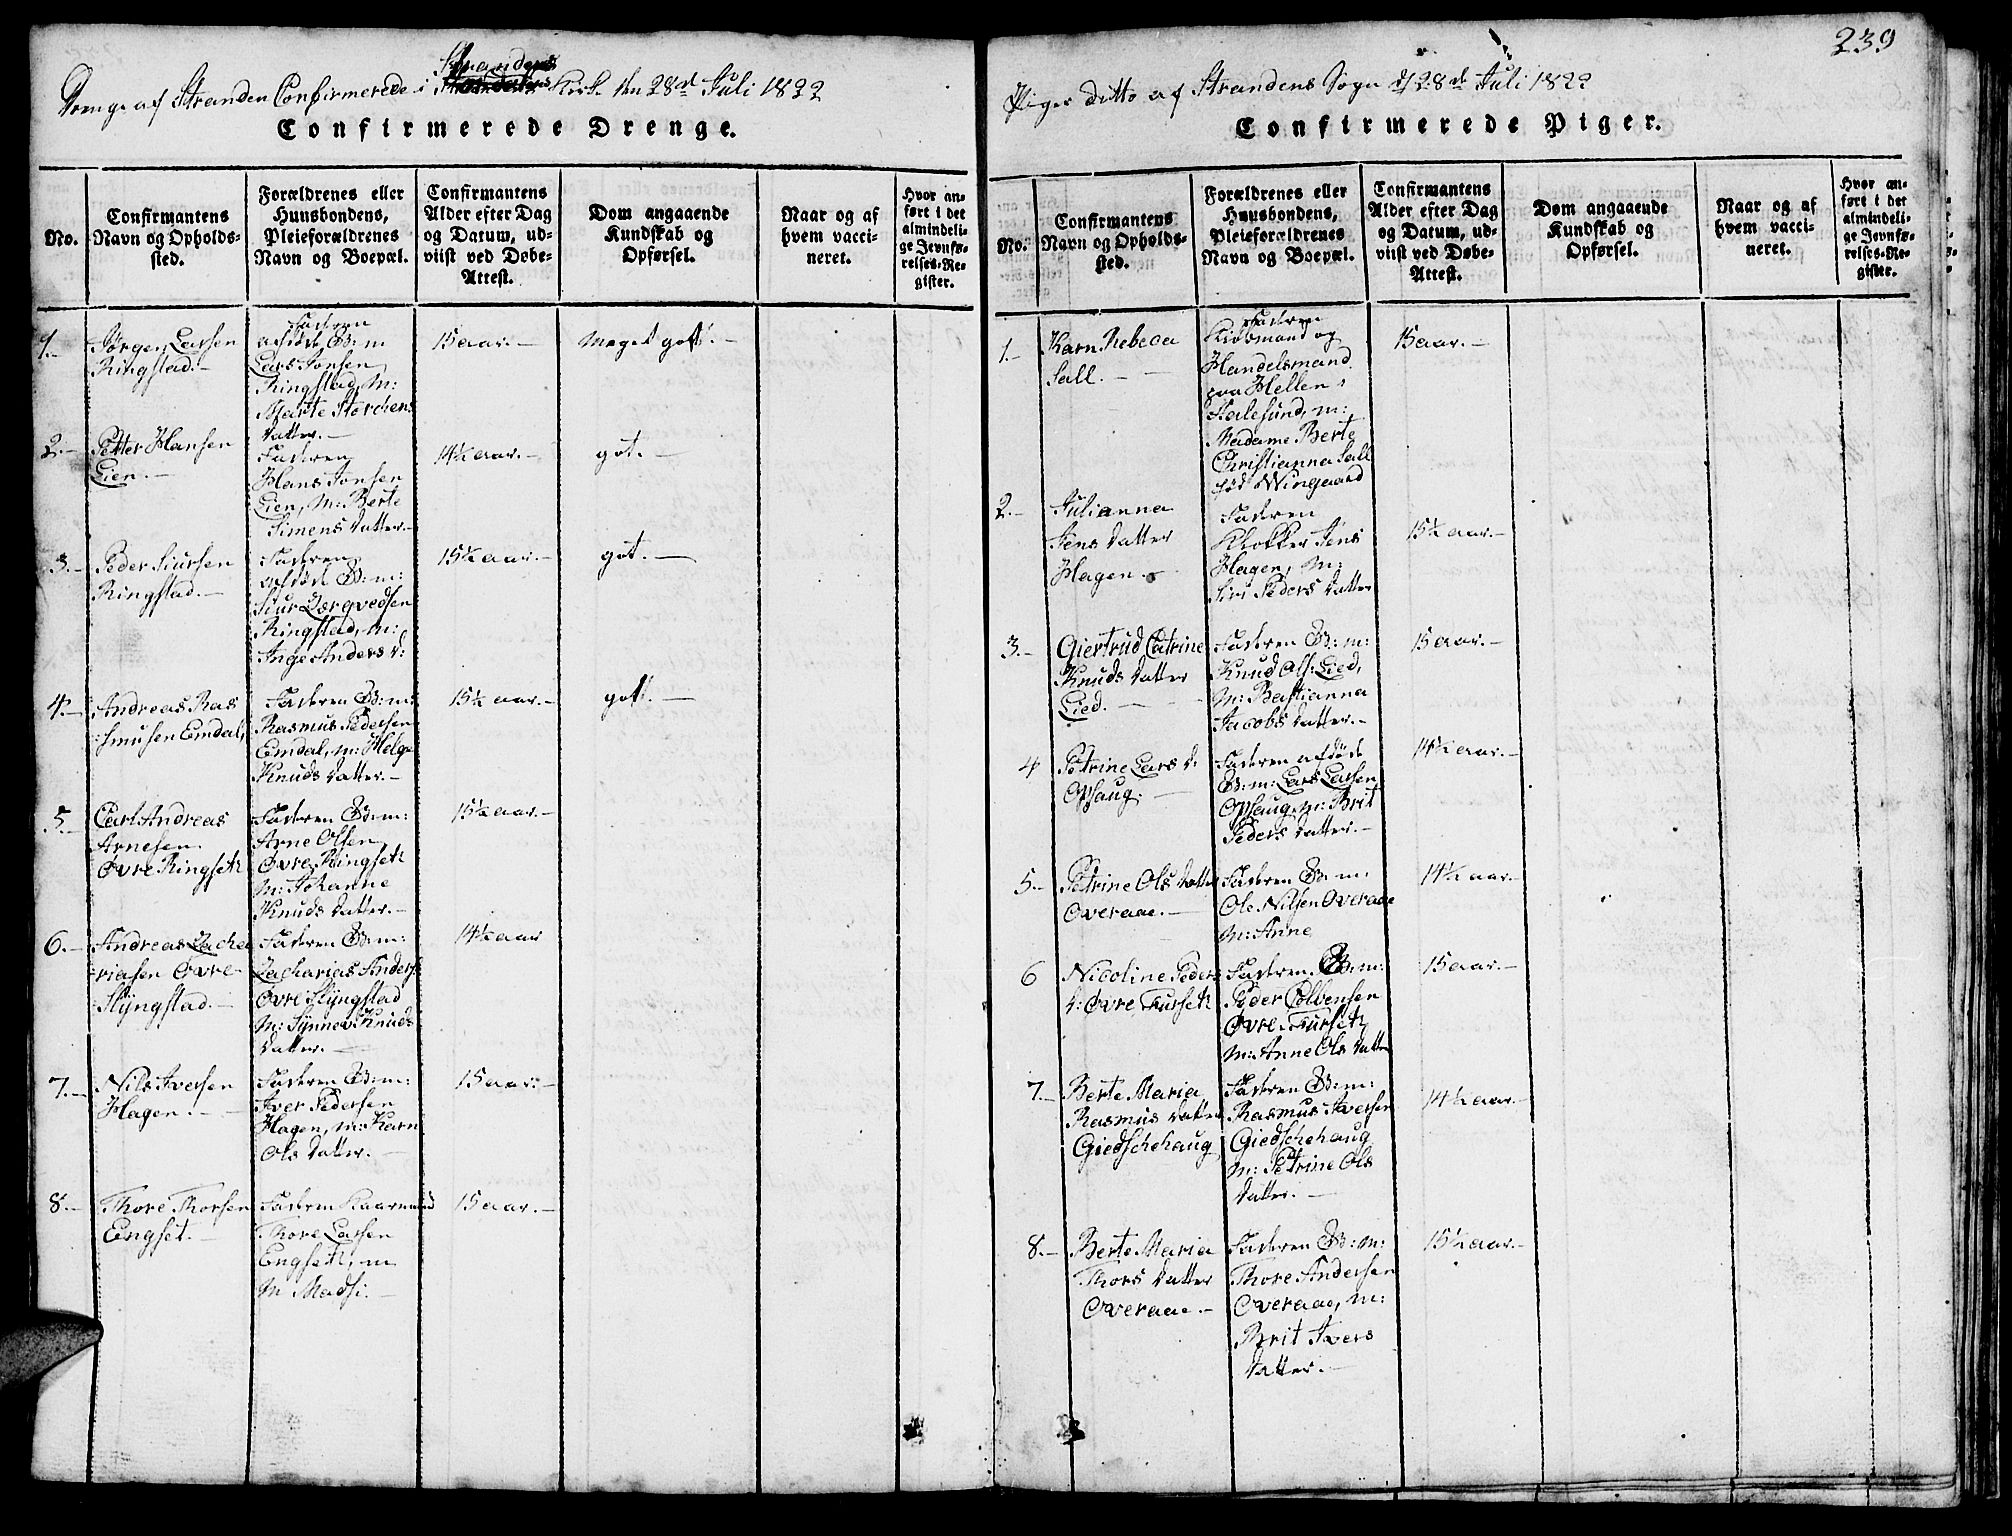 239
Drenge af Stranden Confirmerede i Strandens Kirk den 28de Juli 1822
Confirmerede Drenge.
No.
Confirmantens
Navn og Opholds-
sted.
Forældrenes eller
Huusbondens,
Pleieforældrenes
Navn og Boepæl.
Confirmantens
Alder efter Dag
og Datum, ud-
viist ved Døbe-
Attest.
Dom angaaende
Kundskab og
Opførsel.
Naar og af
hvem vacci-
neret.
Hvor an-
ført i det
almindeli-
ge Jevnfø-
relses-Re-
gister.
1.-
Jørgen Larsen
Ringstad.-
Faderen
afdøde B:m
Lars Jonsen
Ringstad, M:
Marte Storchens
datter.-
15 aar.-
Meget got.-
2.-
Petter Hansen
Lien.-
Faderen
Hans Jonsen
Lien, M: Berte
Simens datter.-
14½ aar.-
got.-
3.-
Peder Siursen
Ringstad.-
Faderen
afdøde B:m:
Siur Zergvedsen
Ringstad, M:
Inge Anders d:
15½ aar.-
got.-
4.-
Andreas Ras
smusen Emdal,
Faderen B:m:
Rasmus Pedersen
Emdal, m: Helge
Knuds datter.-
15½ aar.-
got.-
5.-
Carl Andreas
Arnesen
Øvre Ringseth
Faderen B:m:
Arne Olsen
Øvre Ringseth
M: Johanne
Knuds datter.-
15½ aar.-
6.-
Andreas Zacha
riasen Øvre
Slÿngstad.-
Faderen B:m:
Zacharias Anders
Øvre Slÿngstad
M: Sÿnnev: Knuds
datter.-
14½ aar
7.-
Nils Iversen
Hagen.-
Faderen B:m:
Iver Pedersen
Hagen, m: Karn
Ols datter.-
15 aar.-
8.-
Thore Thorsen
Engset.-
Faderen Kaarmand
Thore Larsen
Engseth, m
M Madsi.-
15 aar.-
Piger ditto af Strandens Sogn d 28de Juli 1822
Confirmerede Piger.
No.
Confirmantens
Navn og Opholds-
sted.
Forældrenes eller
Huusbondens,
Pleieforældrenes
Navn og Boepæl.
Confirmantens
Alder efter Dag
og Datum, ud-
viist ved Døbe-
Attest.
Dom angaaende
Kundskab og
Opførsel.
Naar og af
hvem vacci-
neret.
Hvor an-
ført i det
almindeli-
ge Jevnfø-
relses-Re-
gister.
1.-
Karn Rebeca
Sall.-
Faderen
Kiøbmand og
Handelsmand
paa Hellen i
Aalesund, m:
Madame Berte
Christianna Sall
fød Wingaard
15 aar.-
2.-
Julianna
Jens datter
Hagen.
Faderen
Klokker Jens
Hagen, M:
Siri Peders datter
15½ aar.-
3.-
Giertrud Catrine
Knuds datter
Lied.-
Faderen B:m:
Knud Ols: Lied,
M: Bastianna
Jacobs datter.-
15 aar.-
4
Petrine Lars d:
Opsaug.-
Faderen afdøde
B:m: Lars Larsen
Opsaug, m: Brit
Peders datter.-
14½ aar.-
5.-
Petrine Ols datter
Overaae.-
Faderen B:m:
Ole Nilsen Overaae
M: Anne
14½ aar.-
6
Nicoline Peders
d: Øvre Furseth
Faderen B:m:
Peder Colbensen
Øvre Furseth
M: Anne Ols datter
15 aar.-
7.-
Berte Maria
Rasmus datter
Giedschehaug
Faderen B:m:
Rasmus Iversen
Giedschehaug
M: Petrine Ols
datter.-
14½ aar.-
8.-
Berte Maria
Thors datter
Overaae.-
Faderen B:m:
Thore Andersen
Overaae, m:
Brit Ivers
datter.-
15½ aar.-